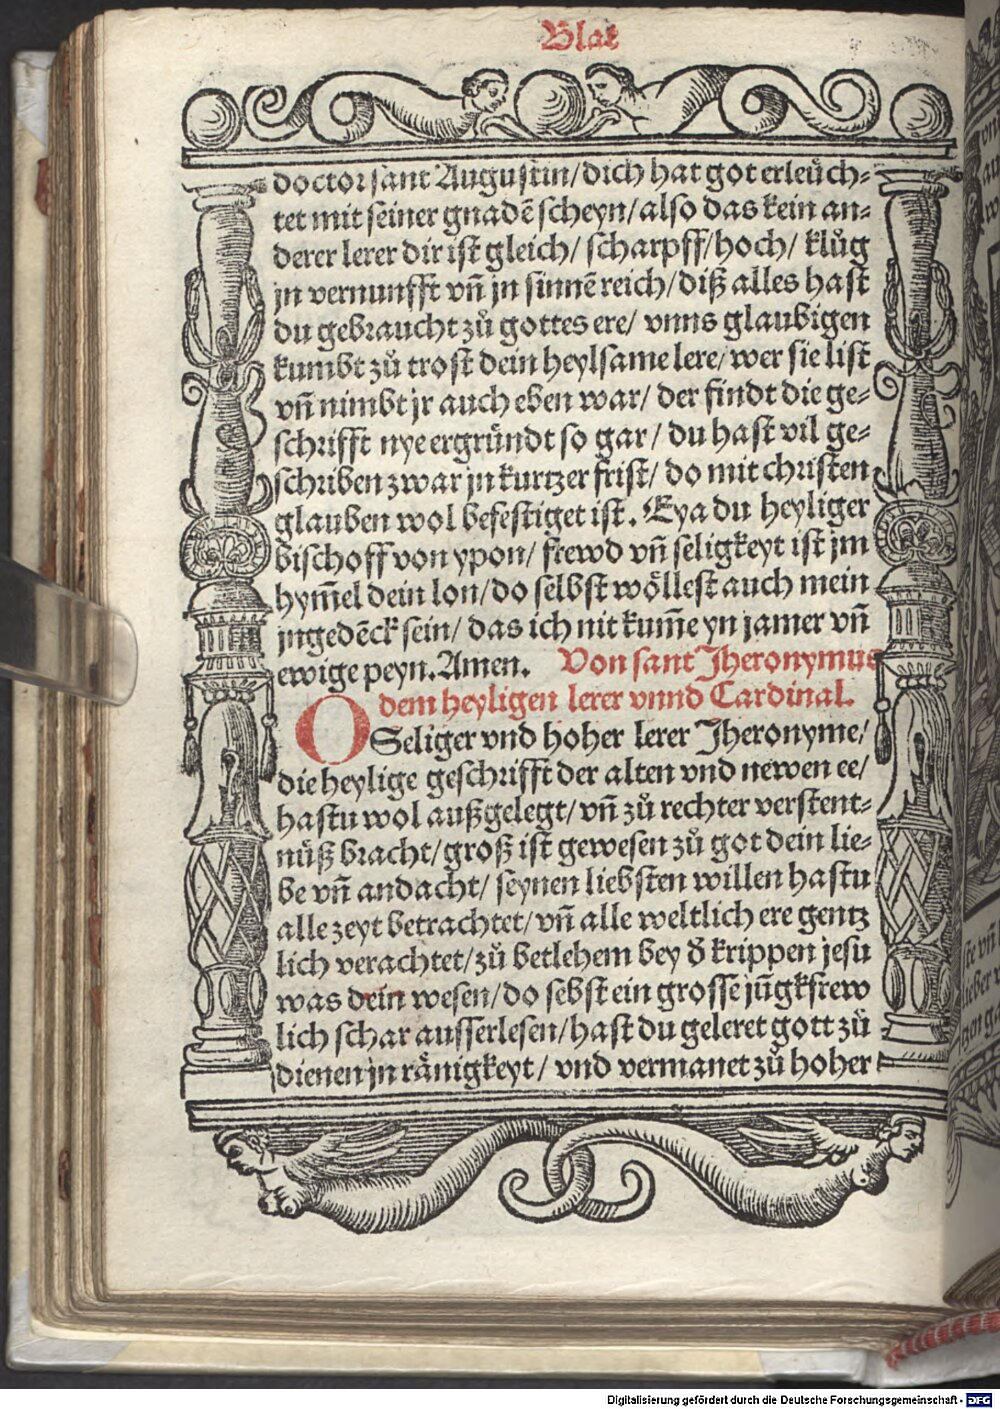 Blat
doctor sant Augustin/ dich hat got erleüch⸗
tet mit seiner gnadē scheyn/ also das kein an⸗
derer lerer dir ist gleich/ scharpff/ hoch/ klůg
jn vernunfft vñ jn sinnē reich/ diß alles hast
du gebraucht zů gottes ere/ vnns glaubigen
kumbt zů trost dein heylsame lere/ wer sie list
vñ nimbt jr auch eben war/ der findt die ge⸗
schrifft nye ergründt so gar/ du hast vil ge⸗
schriben zwar jn kurtzer frist/ do mit christen
glauben wol befestiget ist. Eya du heyliger
bischoff von ypon/ frewd vñ seligkeyt ist jm
hym̄el dein lon/ do selbst wöllest auch mein
jngedēck sein/ das ich nit kum̄e yn jamer vñ
ewige peyn. Amen. Von sant Jheronymus
dem heyligen lerer vnnd Cardinal.
O Seliger vnd hoher lerer Jheronyme/
die heylige geschrifft der alten vnd newen ee/
hastu wol außgelegt/ vñ zů rechter verstent⸗
nüß bracht/ groß ist gewesen zů got dein lie⸗
be vñ andacht/ seynen liebsten willen hastu
alle zeyt betrachtet/ vñ alle weltlich ere gentz
lich verachtet/ zů betlehem bey ð krippen jesu
was dein wesen/ do sebst ein grosse jūgkfrew
lich schar ausserlesen/ hast du geleret gott zů
dienen jn ränigkeyt/ vnd vermanet zů hoher
Digitalisierung gefördert durch die Deutsche Forschungsgemeinschaft - DFG